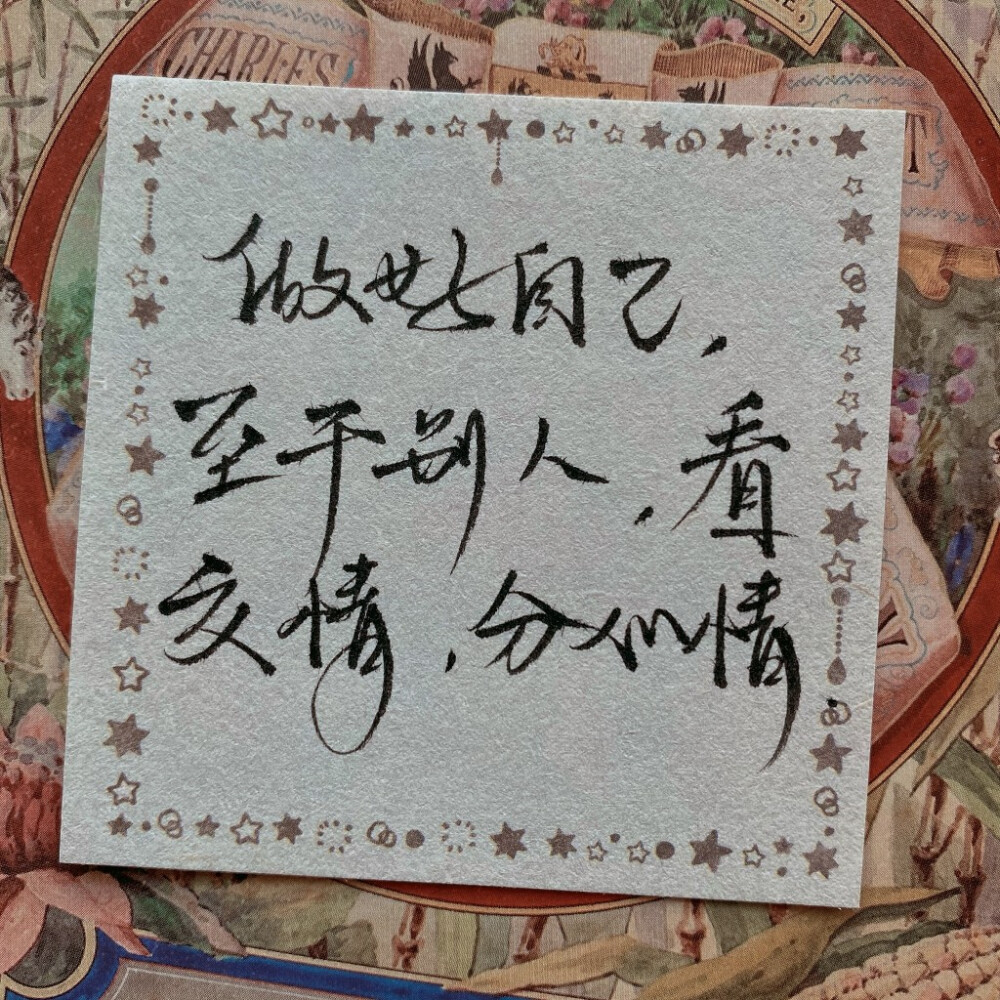 CHARLES
做好自己,
至于别人,看
交情,分心情